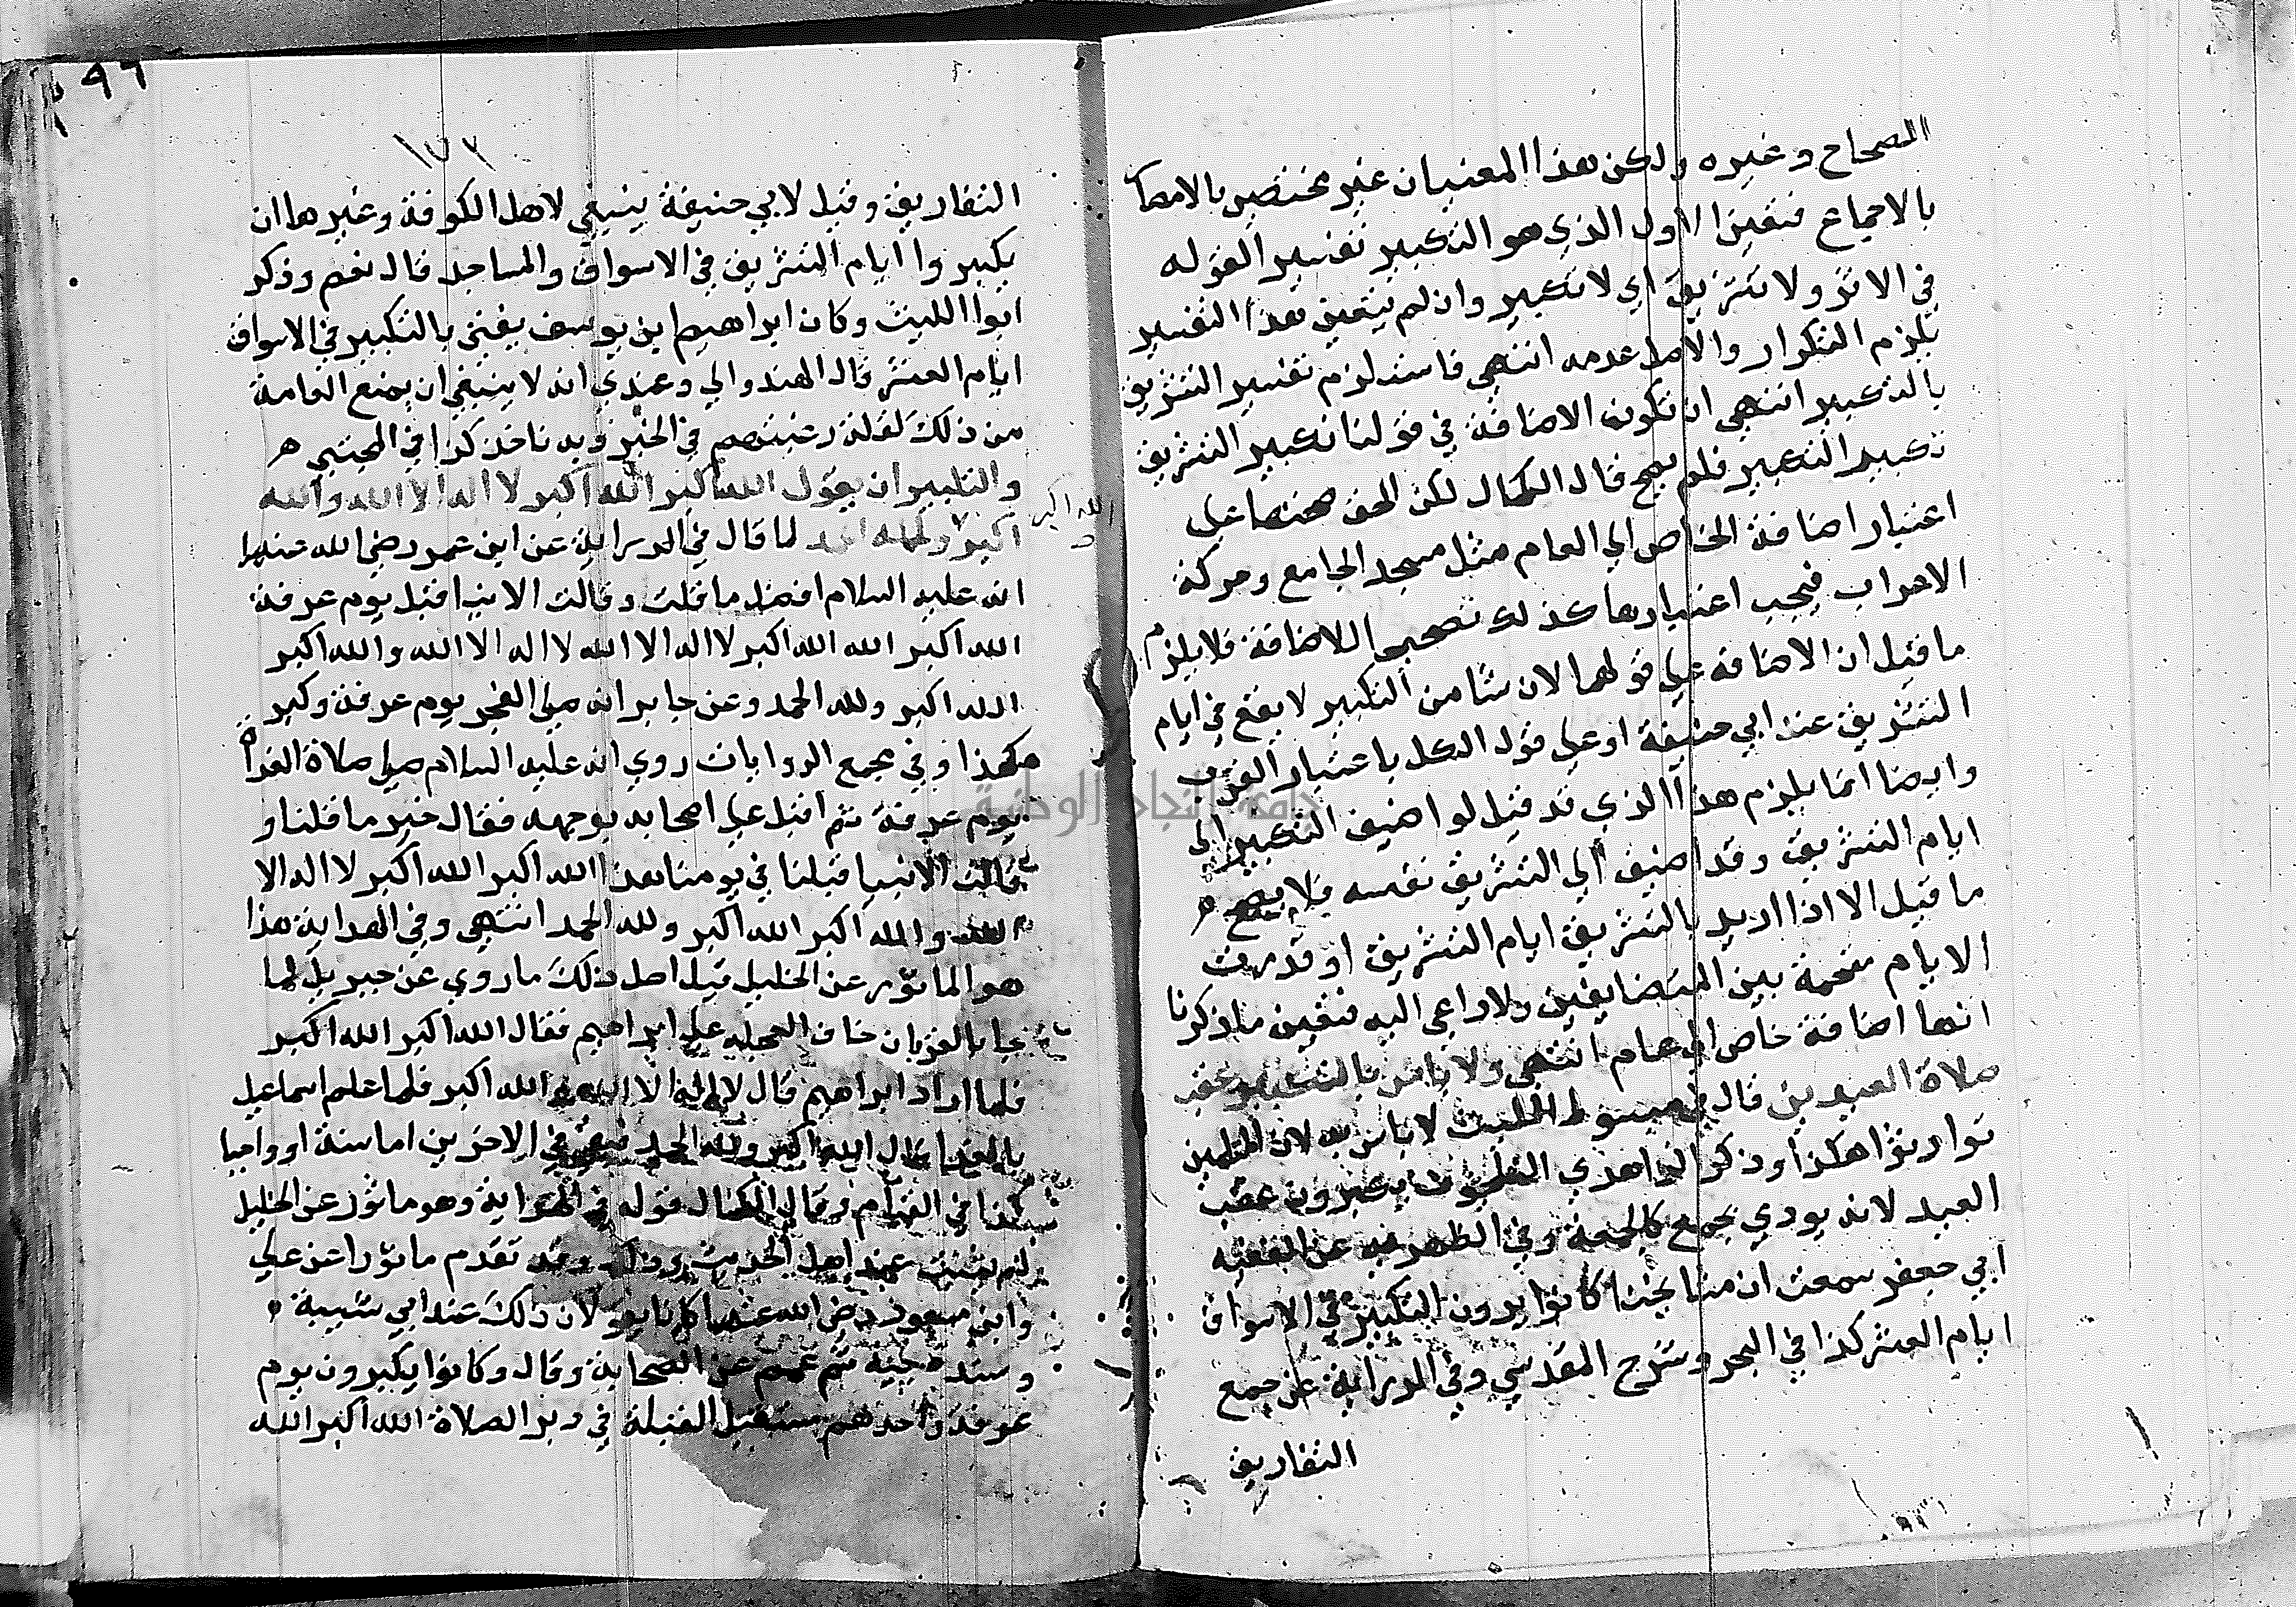 الصحاح وغيره ولكن هذا المعنيان غير مختصين بالامصا
بالاجماع فتعين الاول الذي هو التكبير تفسيرا لقوله
في الاثر ولا تشريق اي لا تكبير وان لم يتعين هذا التفسير
يلزم التكرار والاصل عدمه انتهى فاستلزم تفسير التشريق
بالتكبير انتهى ان تكون الاضافة في قولنا تكبير التشريق
تكبير التكبير فلم يصح قال الكمال لكن الحق صحتها على
اعتبار اضافة الخاص الي العام مثل مسجد الجامع وحركة
الاعراب فيجب اعتبارها كذلك تصحيحا للاضافة فلا يلزم
ما قيل ان الاضافة على قولهما لان شأ من التكبير لا يقع في ايام
التشريق عند ابي حنيفة او على قول الكل باعتبار القرب
وايضا انما يلزم هذا الذي قد قيل لو اضيف التكبير الى
ايام التشريق وقد اضيف الي التشريق نفسه فلا يصح
ما قيل الا اذا اريد بالتشريق ايام التشريق او قدرت
الايام مقحمة بين المتضايفين ولا داعي اليه فتعين ما ذكرنا
انها اضافة خاص الي عام انتهى ولا باس بالتكبير عقب
صلاة العيدين قال في مبسوط الليث لا باس به لان المسلمين
توارثوا هكذا وذكر يكبرون عقب
العيد لانه يودي بجمع كالجمعة وفي الظهيرية عن الفقيه
ابي جعفر سمعت ان مشايخنا كانوا يرون التكبير في الاسواق
ايام العشر كذا في البحر وشرح المقدسي وفي الدراية عن جمع
التفاريق
٩٦
١٧٢
التفاريق وقيل لابي حنيفة ينبغي لاهل الكوفة وغيرها ان
يكبروا ايام التشريق في الاسواق والمساجد قال نعم وذكر
ابوا الليث وكان ابراهيم ابن يوسف يفتي بالتكبير في الاسواق
ايام العشر قال الهندوالي وعندي انه لا ينبغي ان يمنع العامة
من ذلك لقلة رغبتهم في الخير وبه ناخذ كذا في المجتبي ه
والتكبير ان يقول الله اكبر الله اكبر لا اله الا الله والله
الله اكبر
اكبر ولله الحمد لما قال في الدراية عن ابن عمر رضي الله عنهما
انه عليه السلام افضل ما قلت وقالت الانبيا قبل يوم عرفة
الله اكبر الله الله اكبر لا اله الا الله لا اله الا الله والله اكبر
الله اكبر ولله الحمد وعن جابر انه صلى الفجر يوم عرفة وكبر
هكذا وفي مجمع الروايات روي انه عليه السلام صلى صلاة الغداة
يوم عرفة ثم اقبل على اصحابه بوجهه فقال خير ما قلنا و
قالت الانبيا قبلنا في يومنا هذا الله اكبر الله اكبر لا اله الا
الله والله اكبر الله اكبر ولله الحمد انتهى وفي الهداية هذا
هو الماثور عن الخليل قيل اصل ذلك ما روي عن جبريل لما
جا بالقربان خاف العجلة على ابراهيم فقال الله اكبر الله اكبر
فلما اراد ابراهيم قال لا اله الا الله والله اكبر فلما علم اسماعيل
بالفدا قال الله اكبر ولله الحمد فبقي في الاخرين اما سنة او واجبا
كذا في وقال الكمال قوله في الهداية وهو ماثور عن الخليل
لم يثبت عند اهل الحديث وقد تقدم ماثورا عن علي
وابن مسعود رضي الله عنهما ذلك عند ابي شيبة
وسنده جيد ثم عمم عن الصحابة وقال وكانوا يكبرون يوم
عرفة واحدهم مستقبل القبلة في دبر الصلاة الله اكبر الله
جامعة النجاح الوطنية